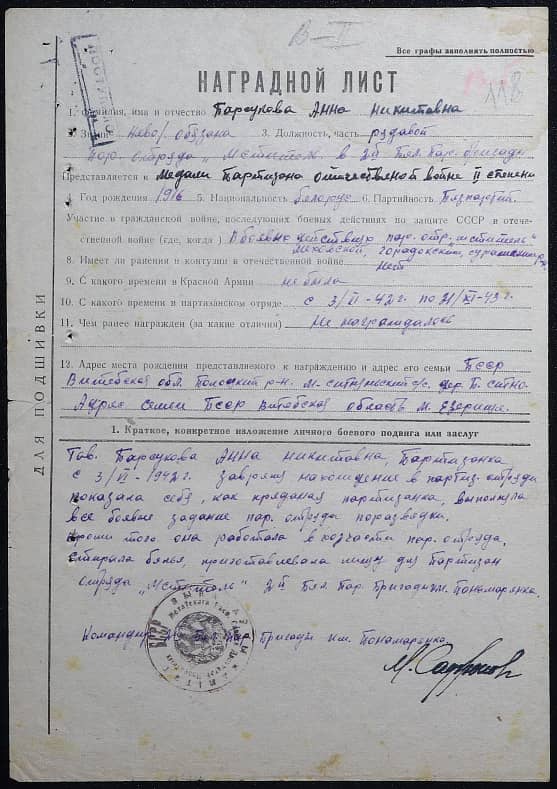 В-II
Все графы заполнять полностью
118
НАГРАДНОЙ ЛИСТ
1. Фамилия, имя и отчество Барсукова Анна Никитовна
2. Звание невоен. обязана 3. Должность, часть рядовой
пар. отряда „Мститель" 2й Бел. Пар. бригады
Представляется к медали Партизана отечественой войне II степени
4. Год рождения 1916 5. Национальность белорус 6. Партийность
7. Участие в гражданской войне, последующих боевых действиях по защите СССР и отече-
ственной войне (где, когда) В боевых действиях пар. отр. „Мститель"
Меховский, Городокский,
8. Имеет ли ранения и контузии в отечественной войне нет
9. С какого времени в Красной Армии не была
10. С какого времени в партизанском отряде с 3/VI-42 г. по 21/XI-43 г.
11. Чем ранее награжден (за какие отличия) Не награждалась
12. Адрес места рождения представляемого к награждению и адрес его семьи БССР
Витебская обл. Полоцкий р-н.
Адрес семьи БССР Витебская область м. Езерище.
1. Краткое, конкретное изложение личного боевого подвига или заслуг
Тов. Барсукова Анна Никитовна, Партизанка
с 3/VI-1942 г. За время нахождение в партиз. отряде
показала себя, как преданая партизанка, выполняла
все боевые задание пар. отряда
Кроми того она работала в хозчасти пар. отряда,
стирала белья, приготавлевала пищу для Партизан
отряда „Мститель" 2й Бел. Пар. Бригады им. Пономаренка.
Командир 2й Бел. Пар. Бригады им. Пономаренка.
ДЛЯ ПОДШИВКИ
БССР